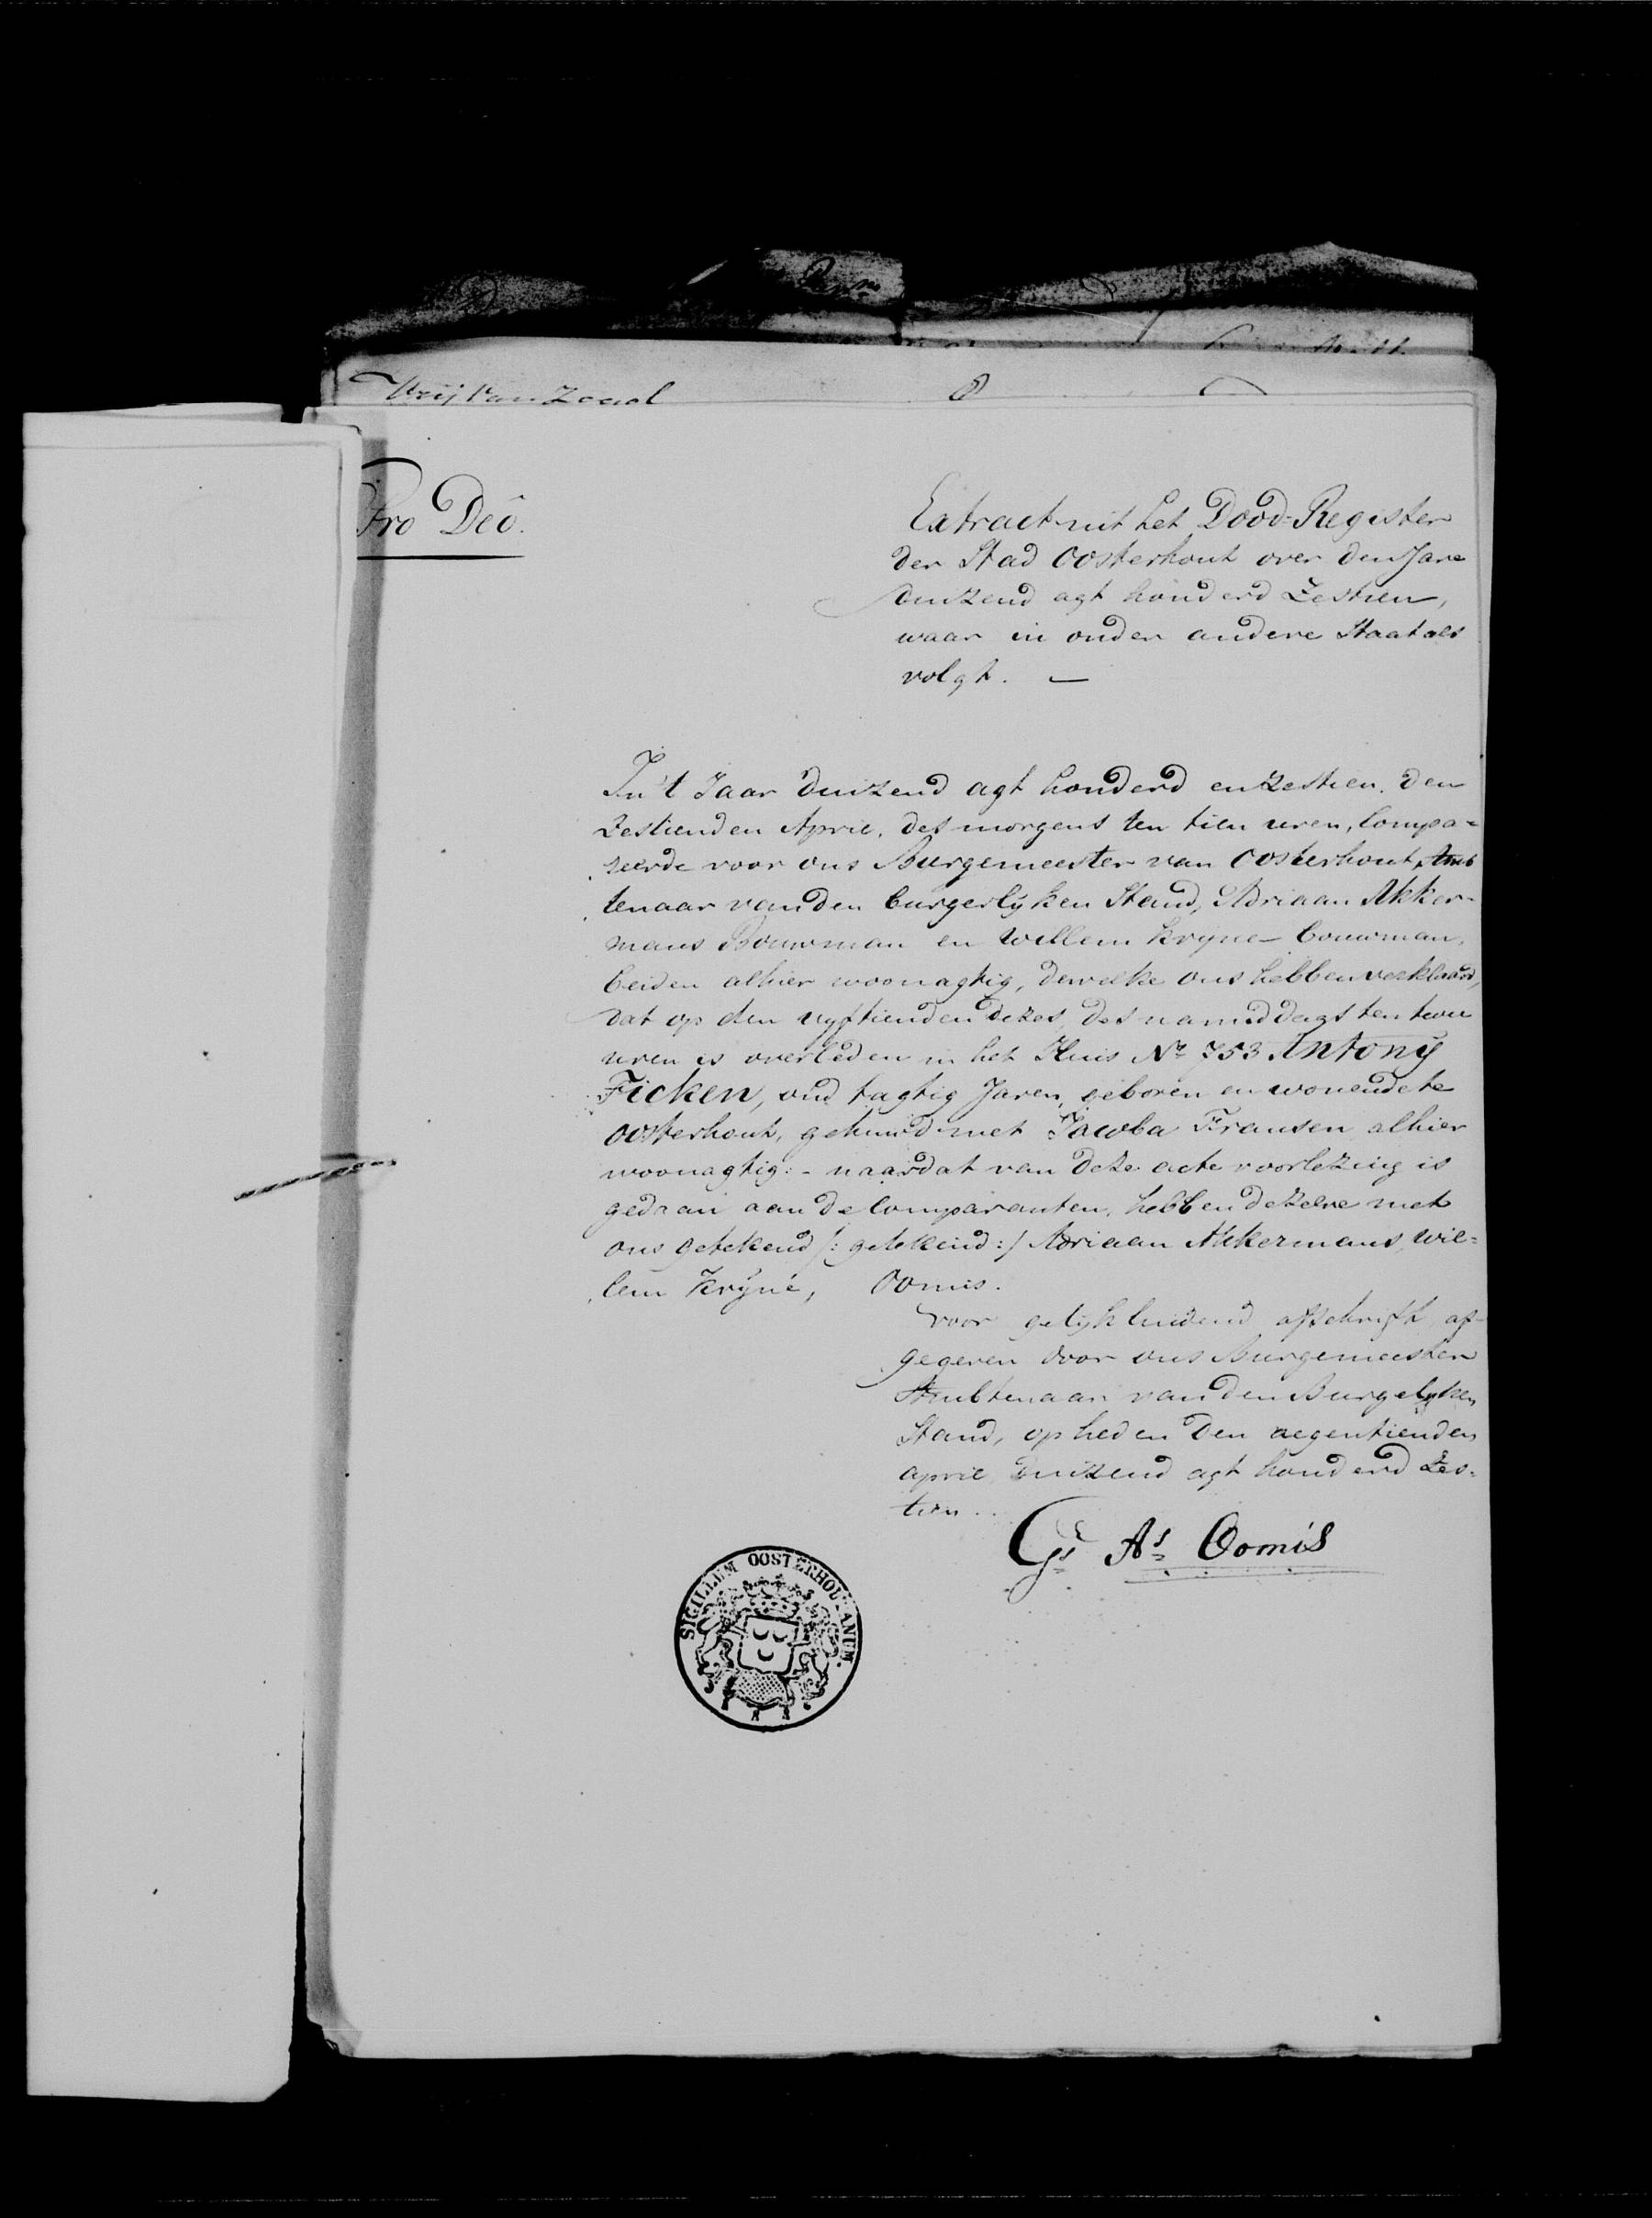 Vrij van Zegel
Pro Deo.
Extract uit het Dood-Register
der Stad Oosterhout over den Jare
duizend agt honderd Zestien,
waar in onder andere Staat als
volgt. —
In 't Jaar duizend agt honderd en zestien. den
Zestienden April, des morgens ten tien uren, Compa=
reerde voor ons Burgemeester van Oosterhout, Amb
tenaar van den burgerlyken Stand, Adriaan Akker-
mans Bouwman en Willem Kryne bouwman,
beiden alhier woonagtig, dewelke ons hebben verklaard,
dat op den vyftienden dezes, des namiddags ten twee
uren is overleden in het Huis No 753 Antony
Ficken, oud tagtig Jaren, geboren en wonende te
Oosterhout, gehuwd met Jacoba Fransen alhier
woonagtig: - naardat van deze acte voorlezing is
gedaan aan de Comparanten, hebben dezelve met
ons getekend /: getekend :/ Adriaan Akkermans, Wil=
lem Kryne, Oomis.
Voor gelykluidend afschrift af-
gegeven door ons Burgemeester
Ambtenaar van den Burgelyken
Stand, op heden den negentienden
april duizend agt honderd Zes=
tien..
Gs As Oomis
SIGILLEM OOSTERHOUTANUM.